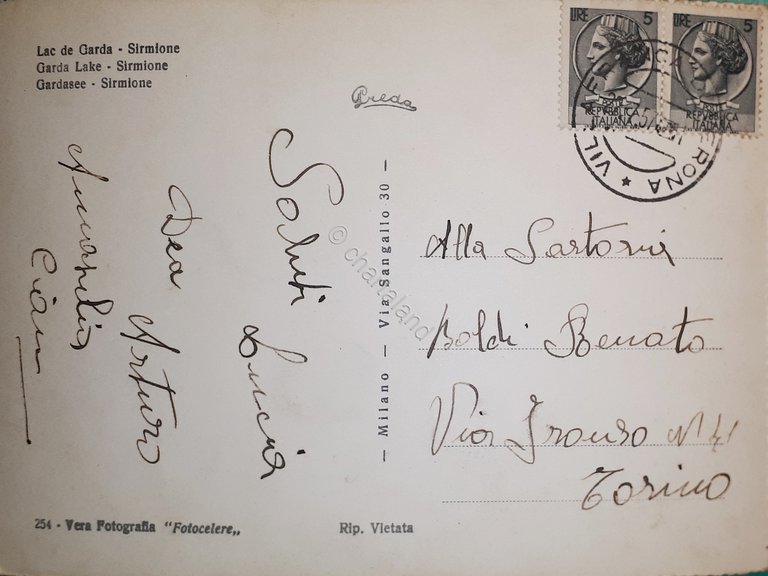 Lac de Garda - Sirmione
Garda Lake - Sirmione
Gardasee - Sirmione
Breda
LIRE 5
POSTE
REPVBBLICA
ITALIANA
LIRE 5
POSTE
REPVBBLICA
ITALIANA
VERONA
Saluti
Lucia
Dea Arturo
Ciau
© chartaland
— Milano — Via Sangallo 30 —
Alla Sartoria
Boldi Renato
Via N° 41
Torino
254 - Vera Fotografia "Fotocelere„
Rip. Vietata